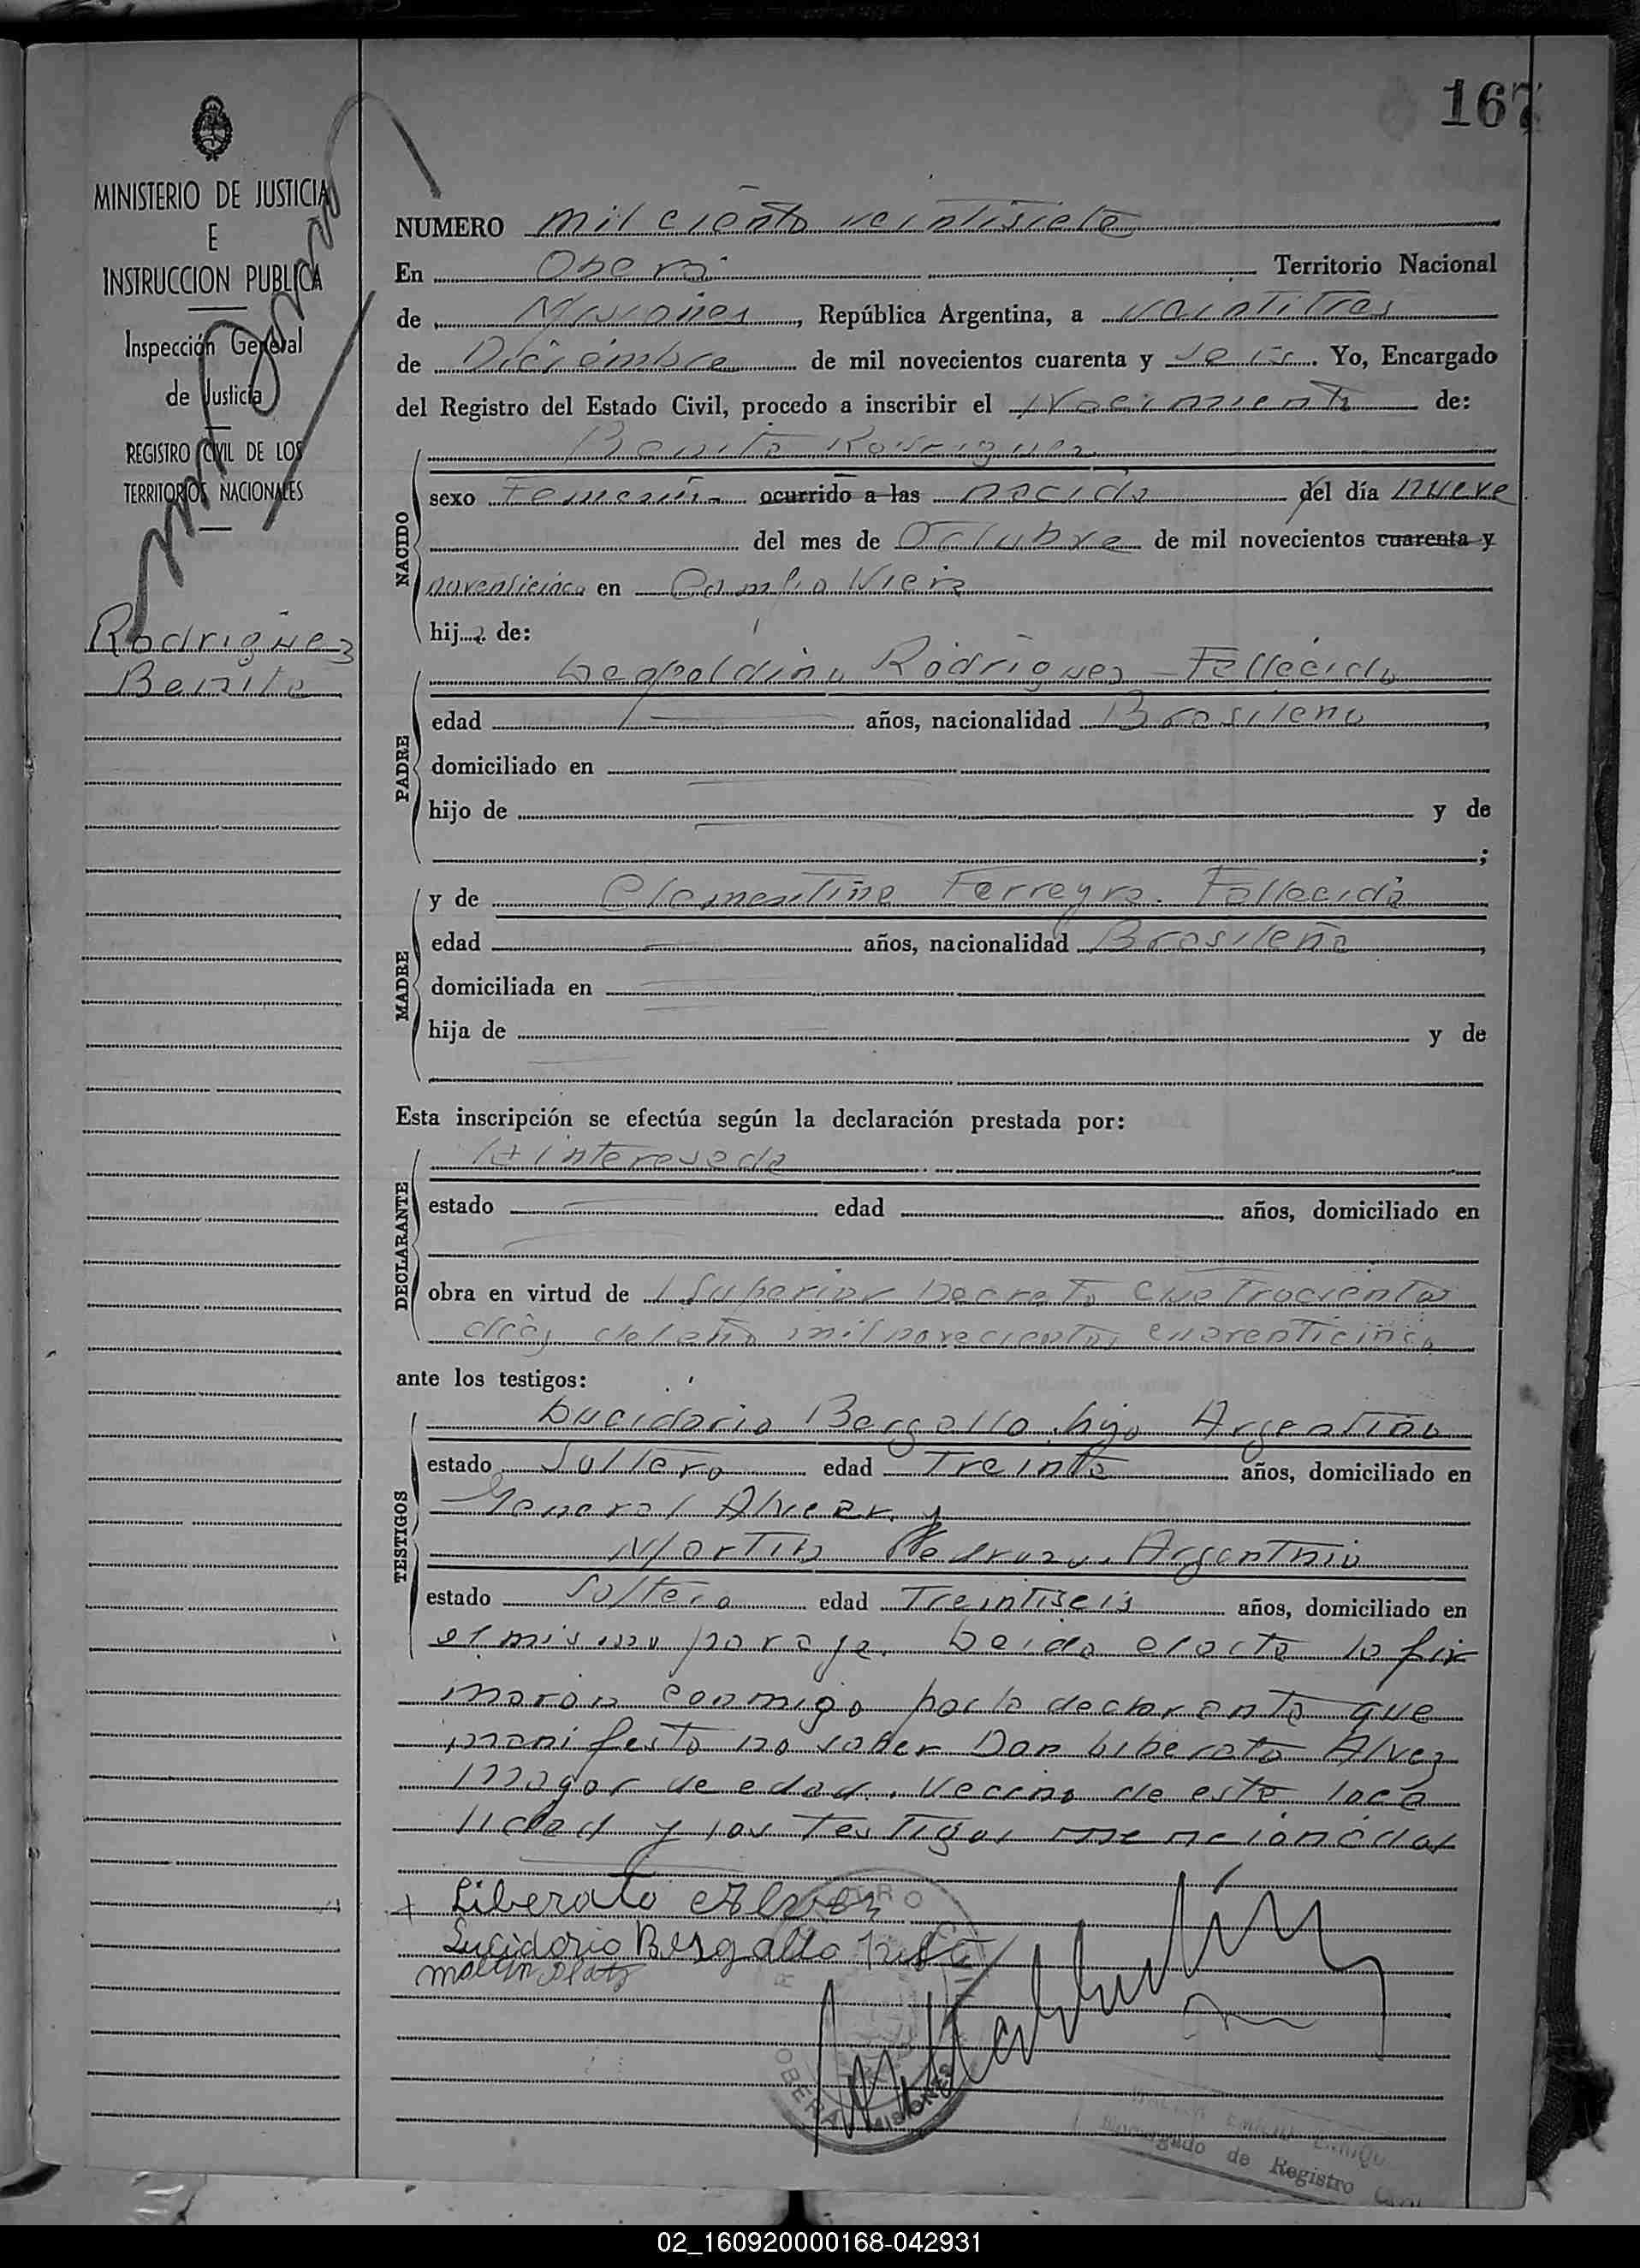 167
MINISTERIO DE JUSTICIA
E
INSTRUCCION PUBLICA
Inspección General
de Justicia
REGISTRO CIVIL DE LOS
TERRITORIOS NACIONALES
Rodriguez
Benita
NUMERO mil ciento veintisiete
En Obera Territorio Nacional
de Misiones, República Argentina, a veintitres
de Diciembre de mil novecientos cuarenta y seis. Yo, Encargado
del Registro del Estado Civil, procedo a inscribir el Nacimiento de:
Benita Rodriguez
NACIDO
sexo Femenino ocurrido a las nacida del día nueve
del mes de Octubre de mil novecientos cuarenta y
noventicinco en Campo Viera
hija de:
PADRE
Leopoldino Rodriguez - Fallecido
edad años, nacionalidad Brasileno
domiciliado en
hijo de y de
;
MADRE
y de Clementina Ferreyra. Fallecida
edad años, nacionalidad Brasileña
domiciliada en
hija de y de
Esta inscripción se efectúa según la declaración prestada por:
DECLARANTE
la interesada
estado edad años, domiciliado en
obra en virtud de Superior Decreto Cuatrocientos
diez del año mil novecientos cuarenticinco
ante los testigos:
TESTIGOS
Lucidorio Bergallo hijo Argentino
estado Soltero edad Treinta años, domiciliado en
General Alvear y
Martin Argentino
estado Soltero edad Treintiseis años, domiciliado en
el mismo paraje. Leida el acta la fir
maron conmigo por la declarante que
manifesto no saber Don Liberato Alvez
mayor de edad, vecino de esta loca
lidad y los Testigos mencionados
Liberato Alvez
Lucidorio Bergallo
Martin
OBERA MISIONES
Encargado de Registro
02_160920000168-042931